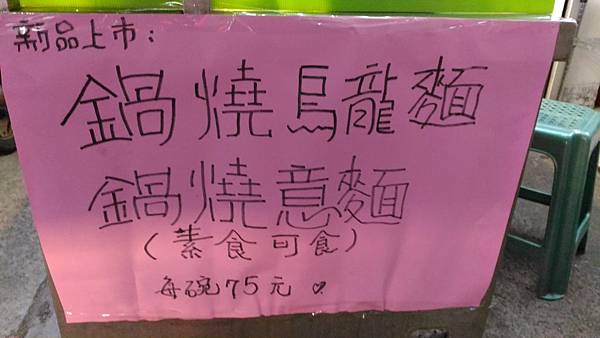 新品上市:
鍋燒烏龍麵
鍋燒意麵
(素食可食)
每碗75元